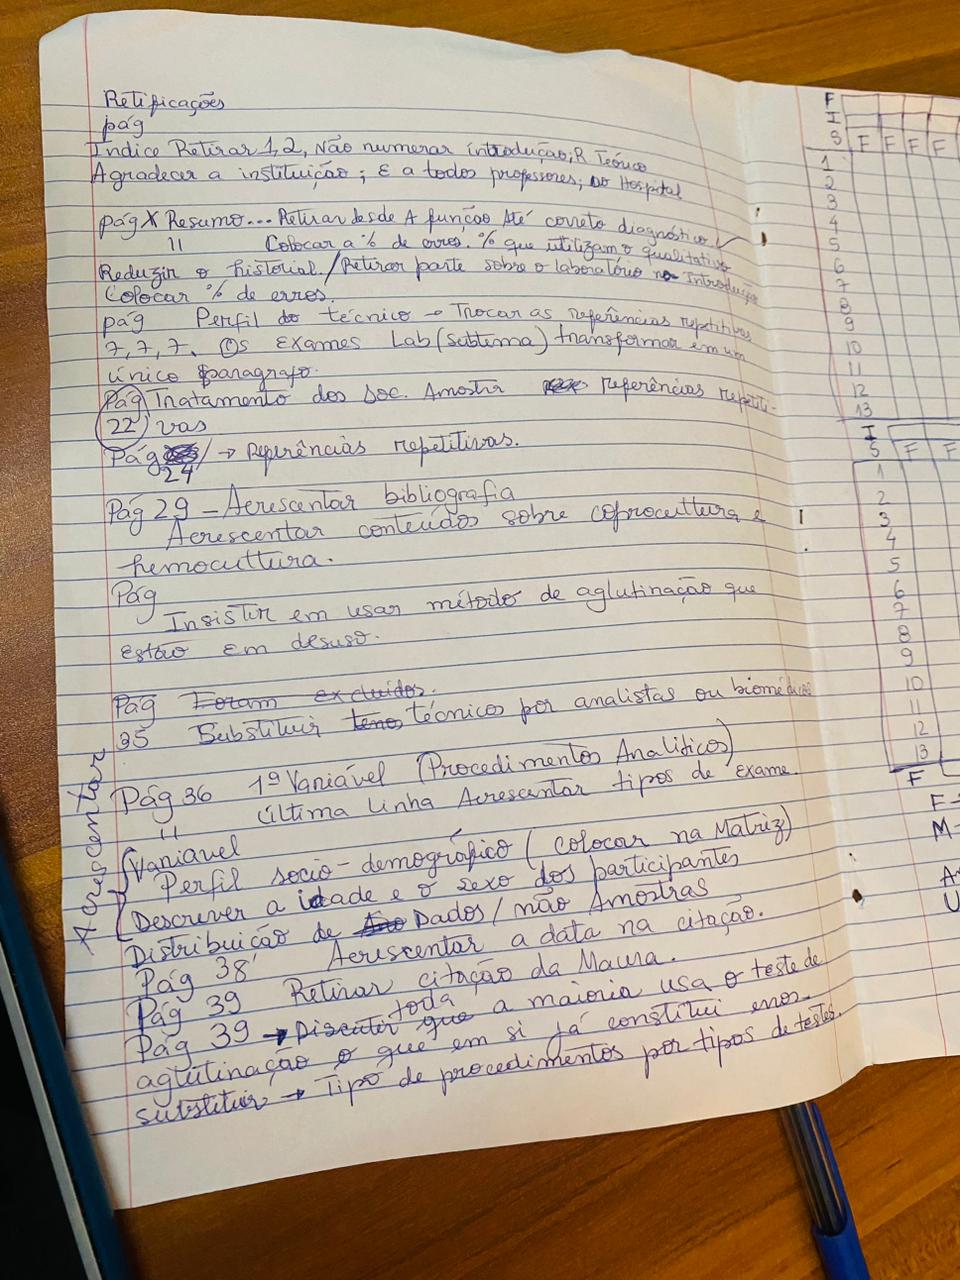 Retificações
pág
Índice Retirar 1,2, Não numerar introdução, R Teórico
Agradecer a instituição; E a todos professores; Do Hospital
pág X Resumo... Retirar desde A função Até correto diagnóstico
11 Colocar a % de erros. % que utilizam o qualitativo
Reduzir o historial./Retirar parte sobre o laboratório no Introdução
Colocar % de erros.
pág Perfil do técnico → Trocar as referências repetitivas
7, 7, 7. Os Exames Lab (subtema) transformar em um
único paragrafo.
Pág Tratamento dos Doc. Amostr Referências repetiti-
22 vas
Pág / → Referências repetitivas.
24
Pág 29 - Acrescentar bibliografia
Acrescentar conteúdos sobre coprocultura e
hemocultura.
Pág
Insistir em usar método de aglutinação que
estão em desuso.
Pág Foram excluidos.
35 Substituir técnicos por analistas ou biomédicos
Pág 36 1º Variável (Procedimentos Analiticos)
11 última linha Acrescentar tipos de exame.
Acrescentar
Variavel
Perfil socio-demográfico (colocar na Matriz)
Descrever a idade e o sexo dos participantes
Distribuição de Dados/não Amostras
Pág 38 Acrescentar a data na citação.
Pág 39 Retirar citação da Maura.
toda
Pág 39 → Discutir que a maioria usa o teste de
aglutinação o que em si já constitui erro.
substituir → Tipo de procedimentos por tipos de testes.
F
I
S F F F F
1
2
3
4
5
6
7
8
9
10
11
12
13
I
S F F
1
2
3
4
5
6
7
8
9
10
11
12
13
F
F
M
A
U